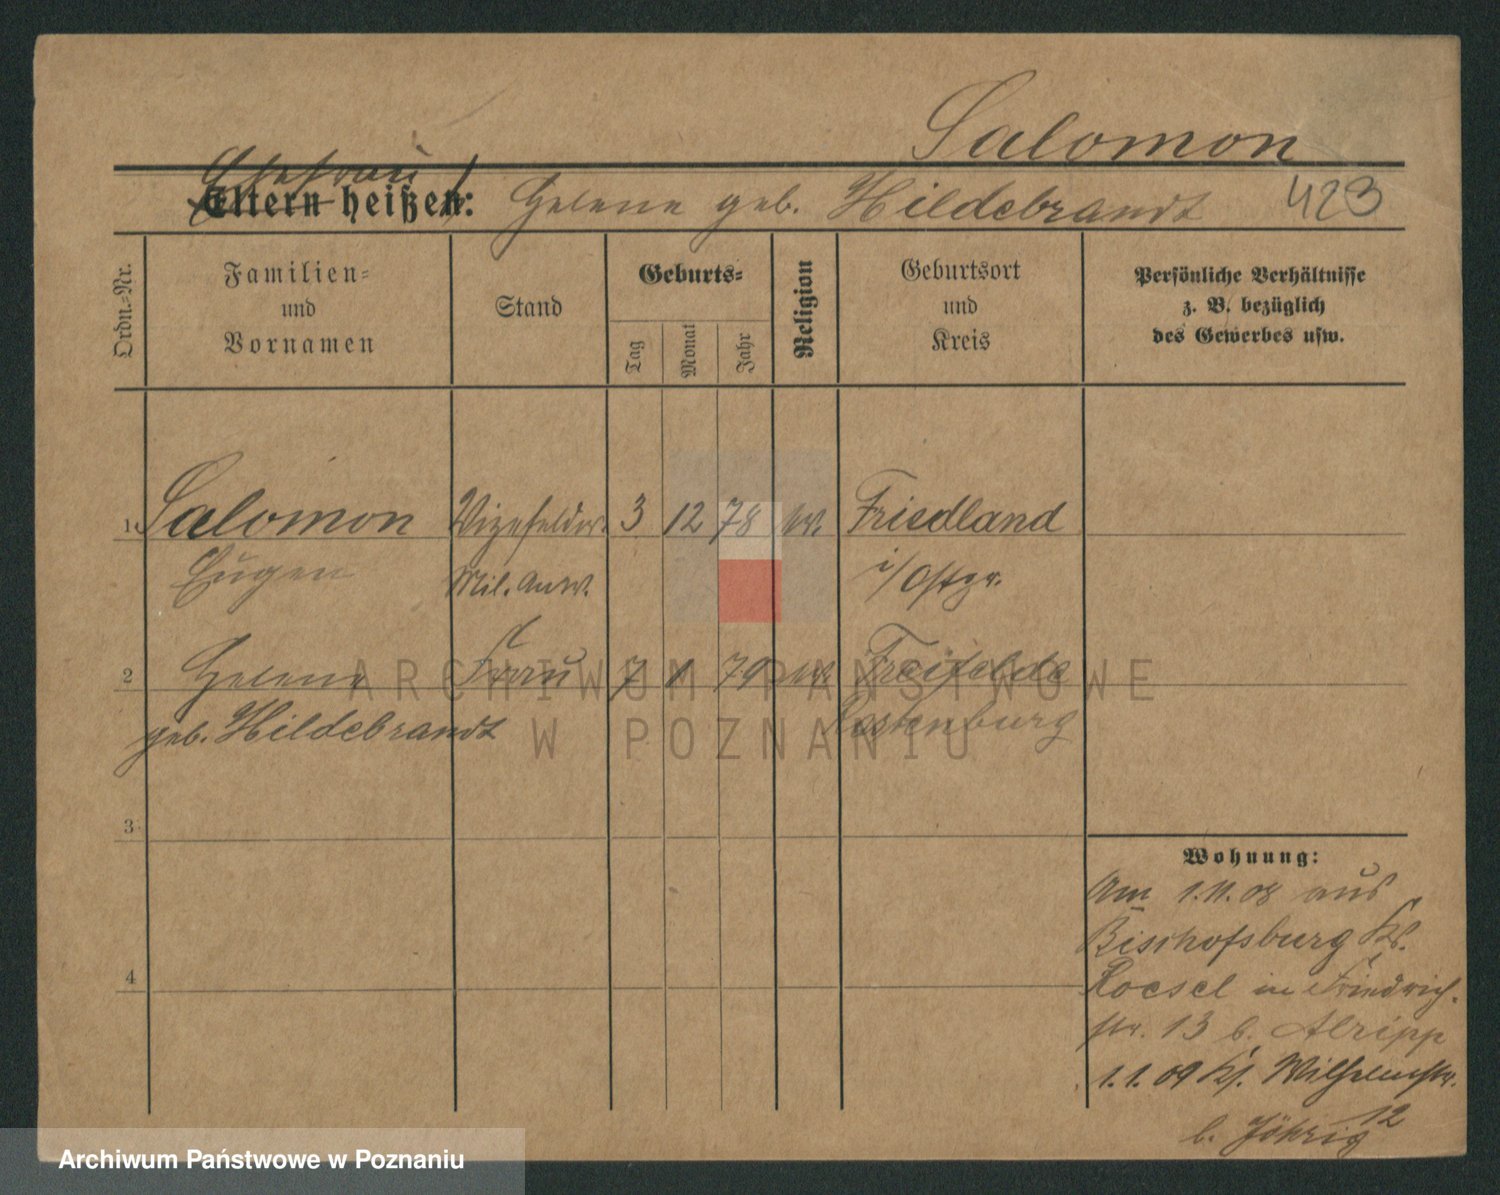 Salomon
Ehefrau
Eltern heißen: Helene geb. Hildebrandt 423
Ordn.-Nr.
Familien-
und
Vornamen
Stand
Geburts-
Tag
Monat
Jahr
Religion
Geburtsort
und
Kreis
Persönliche Verhältnisse
z. B. bezüglich
des Gewerbes usw.
1. Salomon Vizefeldw. 3 12 78 ev. Friedland
Eugen Mil. Anw. i/Ostpr.
2 Helene Frau 7 1 79 ev. Freifelde
geb. Hildebrandt Rastenburg
3
4
Wohnung:
Am 1.11.08 aus
Bischofsburg Kr.
Roessel in Friedrich-
str. 13 b.
1.1.09 Kj. Wilhelmstr.
12
b. Jöhrig
ARCHIWUM PAŃSTWOWE
W POZNANIU
Archiwum Państwowe w Poznaniu